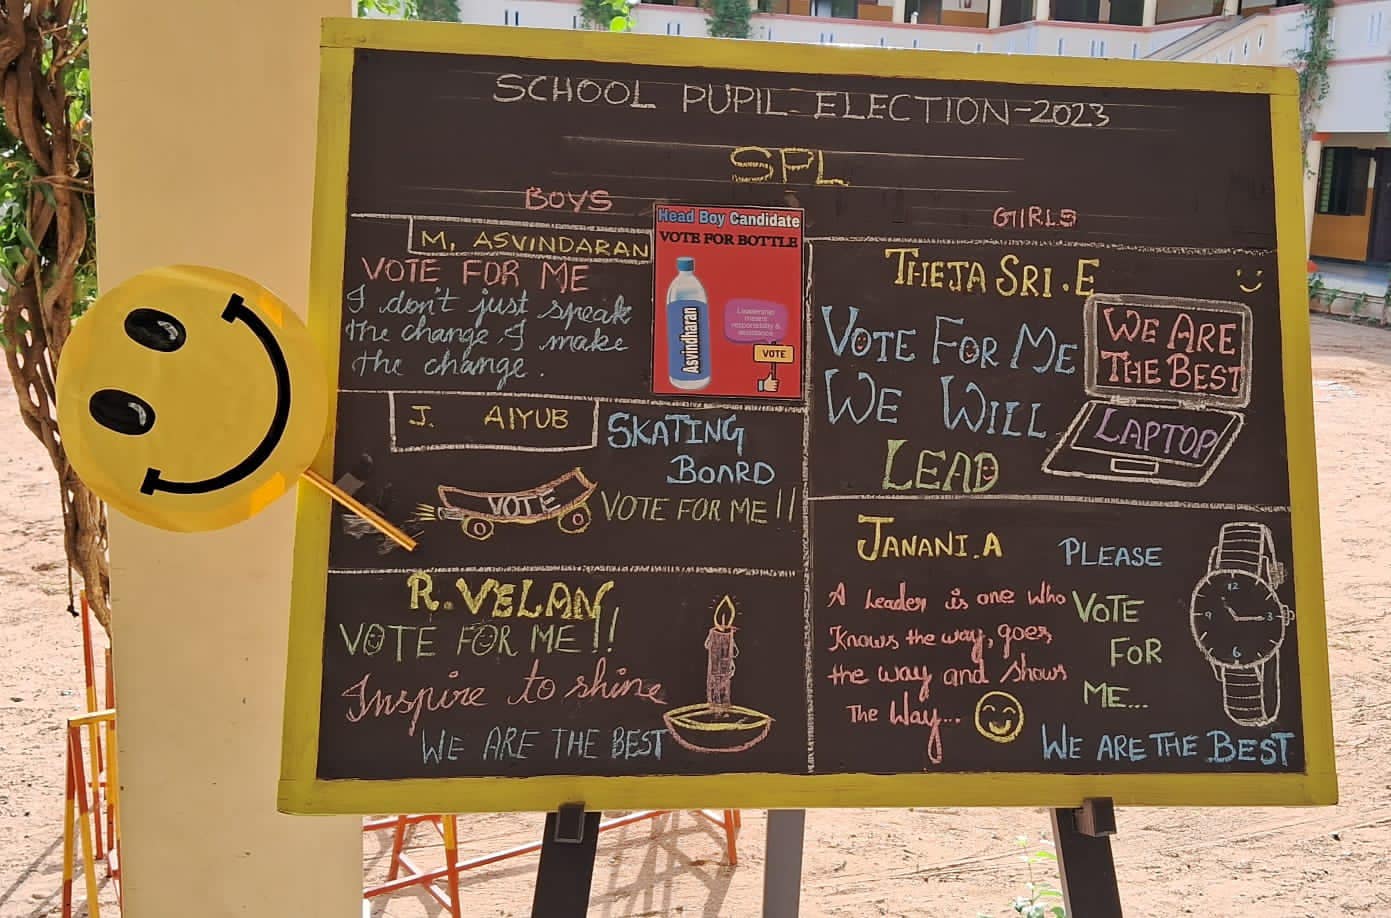 SCHOOL PUPIL ELECTION-2023
SPL
BOYS
M. ASVINDARAN
VOTE FOR ME
I don't just speak
the change. I make
the change.
Head Boy Candidate
VOTE FOR BOTTLE
Asvindharan
Leadership
means
responsibility &
assistance
VOTE
J. AIYUB
SKATING
BOARD
VOTE
VOTE FOR ME!!
R. VELAN
VOTE FOR ME!!
Inspire to shine
WE ARE THE BEST
GIRLS
THEJA SRI.E
VOTE FOR ME
WE WILL
LEAD
WE ARE
THE BEST
LAPTOP
JANANI.A
A Leader is one who
Knows the way, goes
the way and shows
The Way...
PLEASE
VOTE
FOR
ME...
12
9 3
6
WE ARE THE BEST